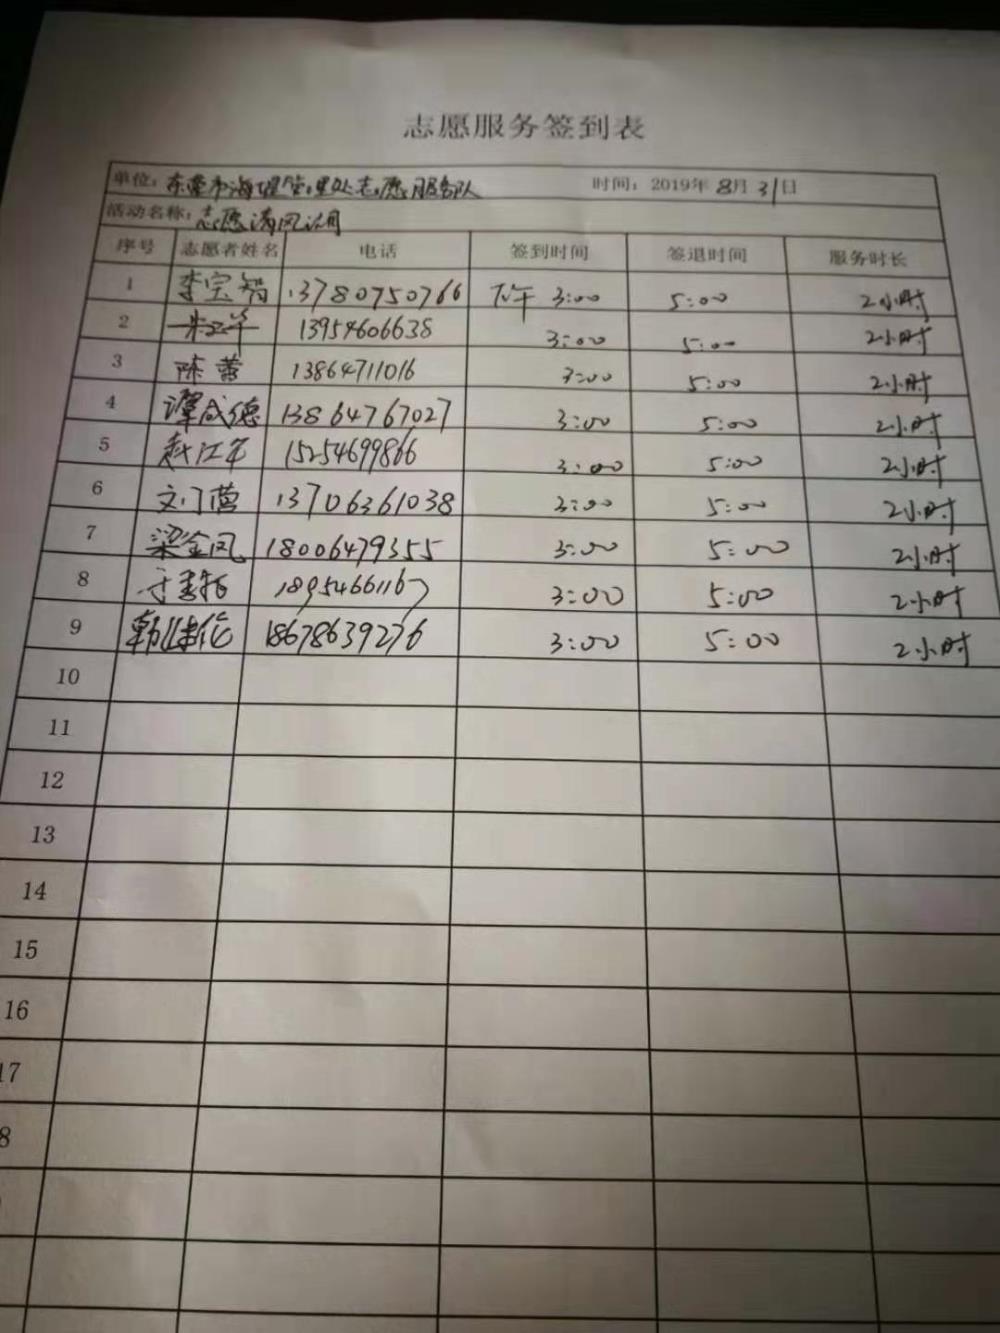 志愿服务签到表
单位：东营市海堤管理处志愿服务队 时间：2019年8月31日
活动名称：志愿清风湖
序号 志愿者姓名 电话 签到时间 签退时间 服务时长
1 李宝智 13780750766 下午 3:00 5:00 2小时
2 13954606638 3:00 5:00 2小时
3 陈蕾 13864711016 3:00 5:00 2小时
4 谭成德 13864767027 3:00 5:00 2小时
5 赵江军 15254699866 3:00 5:00 2小时
6 13706361038 3:00 5:00 2小时
7 梁金凤 18006479355 3:00 5:00 2小时
8 18954661167 3:00 5:00 2小时
9 18678639276 3:00 5:00 2小时
10
11
12
13
14
15
16
17
8